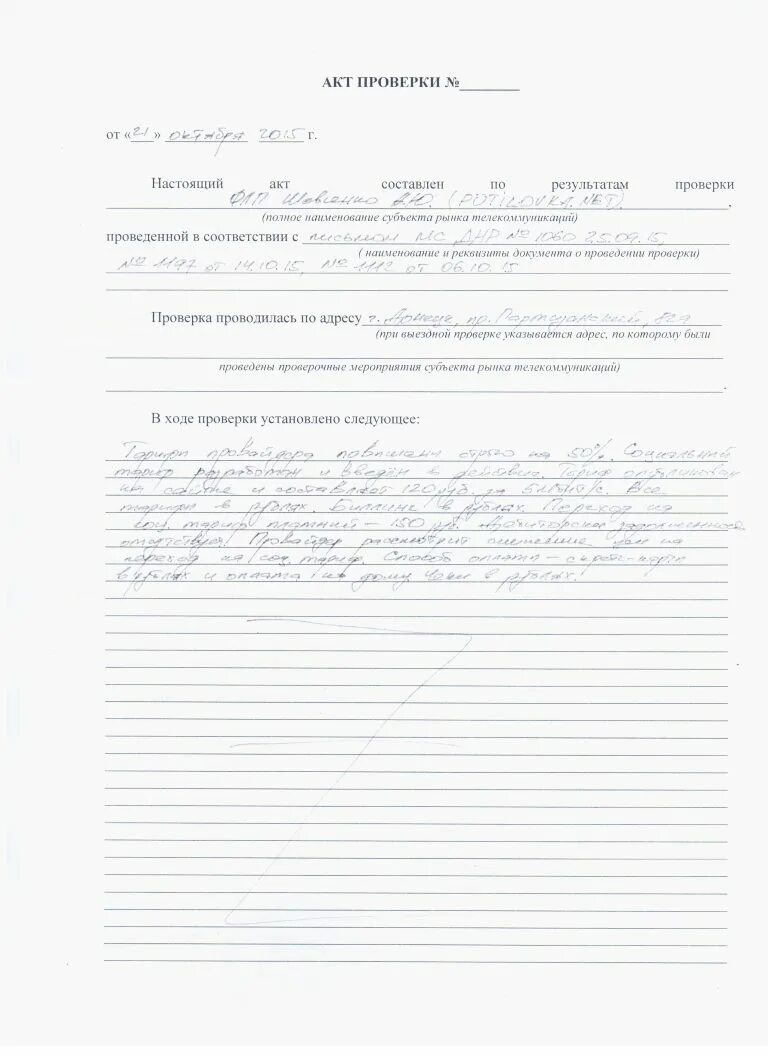 АКТ ПРОВЕРКИ №________
от «21» октября 2015 г.
Настоящий акт составлен по результатам проверки
ФЛП Шевченко А.Ю. (PUTILOVKA.NET).
(полное наименование субъекта рынка телекоммуникаций)
проведенной в соответствии с письмом МС ДНР № 1060 25.09.15,
( наименование и реквизиты документа о проведении проверки)
№ 1197 от 14.10.15, № 1112 от 06.10.15
Проверка проводилась по адресу г. Донецк, пр. Партизанский, 82а
(при выездной проверке указывается адрес, по которому были
проведены проверочные мероприятия субъекта рынка телекоммуникаций)
В ходе проверки установлено следующее:
Тарифы провайдера повышены строго на 50%. Социальный
тариф разработан и введён в действие. Тариф опубликован
на сайте и составляет 120 руб. за Все
тарифы в рублях. Биллинг в рублях. Переход на
соц. тариф платный – 150 руб. задолженность
отсутствует. Провайдер рассмотрит снижение цен на
переход на соц. тариф. Способ оплаты – скретч-карты
в рублях и оплата на дому. Чеки в рублях.